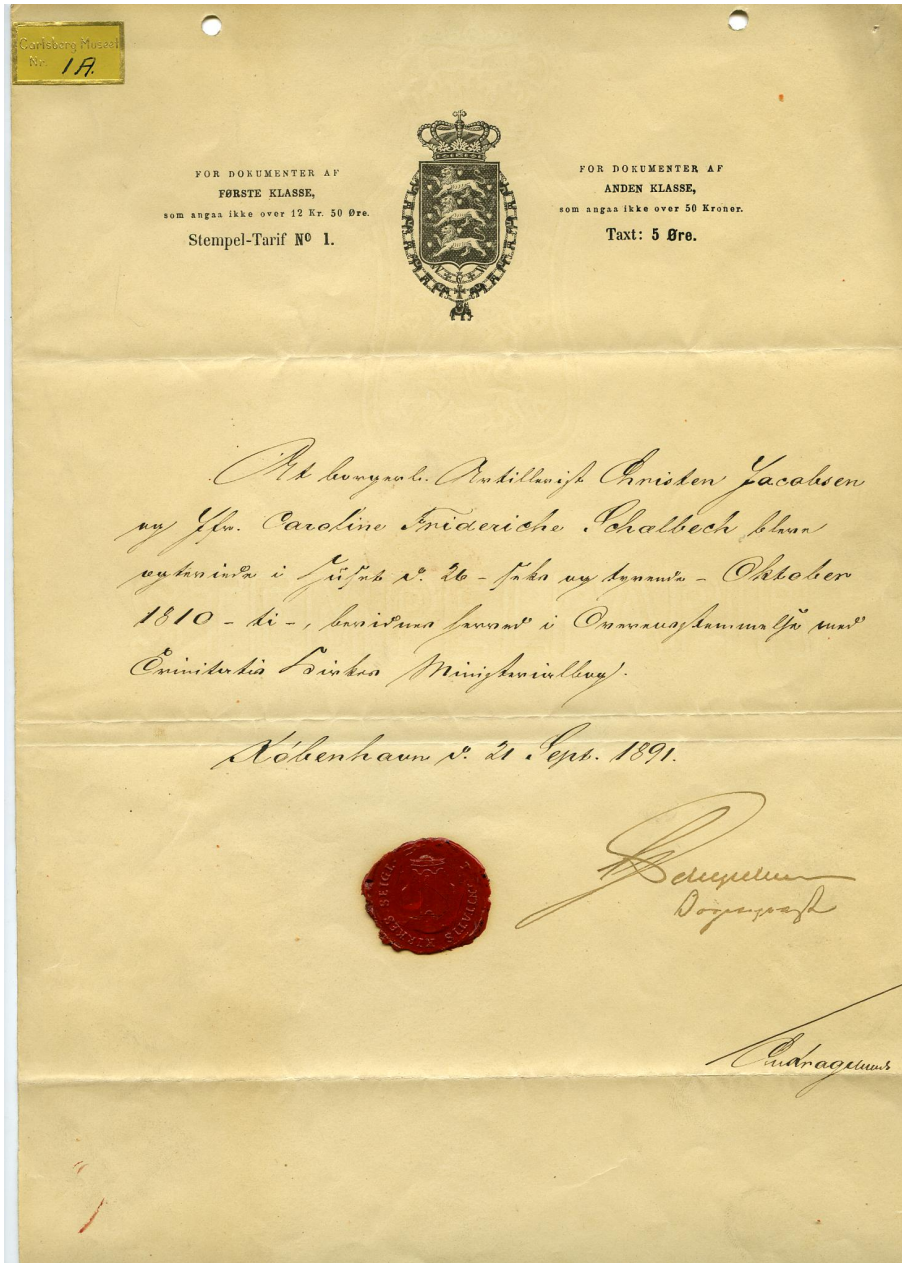 Carlsberg Museet
Nr. 1A.
FOR DOKUMENTER AF
FØRSTE KLASSE,
som angaa ikke over 12 Kr. 50 Øre.
Stempel-Tarif Nº 1.
FOR DOKUMENTER AF
ANDEN KLASSE,
som angaa ikke over 50 Kroner.
Taxt: 5 Øre.
At borgerl. Artillerist Christen Jacobsen
og Jfr. Caroline Frideriche Schalbech bleve
ægteviede i Huset d. 26 - seks og tyvende - Oktober
1810 - ti -, bevidnes herved i Overensstemmelse med
Trinitatis Kirkes Ministerialbog.
København d. 21 Sept. 1891.
TRINITATIS KIRKES SEIGL